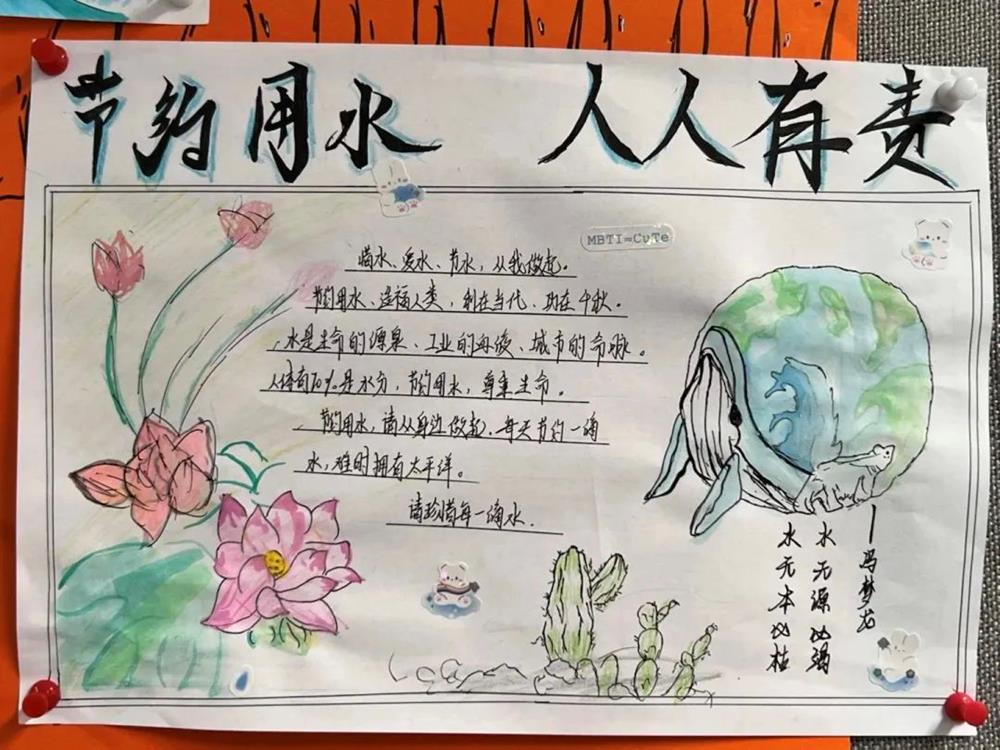 节约用水 人人有责
MBTI=CuTe
惜水、爱水、节水，从我做起。
节约用水、造福人类，利在当代、功在千秋。
水是生命的源泉、工业的血液、城市的命脉。
人体有70%是水分，节约用水，尊重生命。
节约用水，请从身边做起，每天节约一滴
水，难时拥有太平洋。
请珍惜每一滴水．
——冯梦龙
水无源必竭
木无本必枯